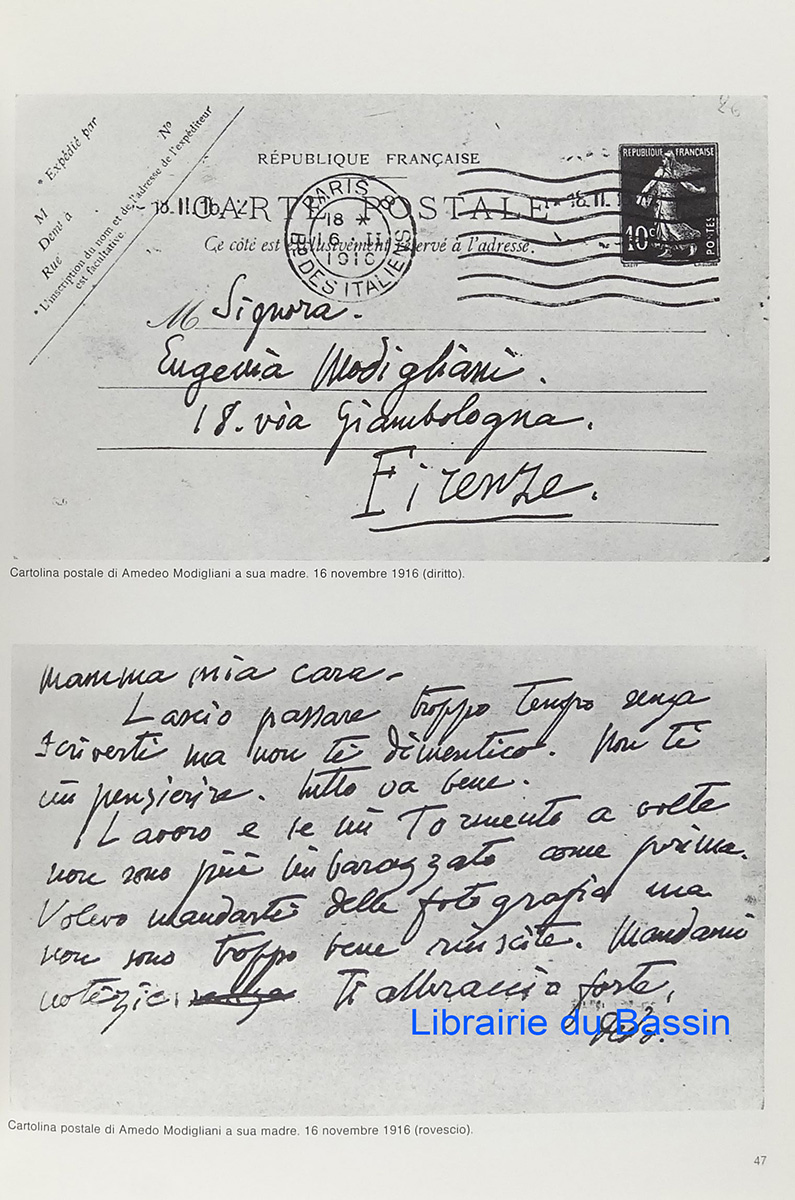 26
* Expédié par
Nº
M
Demt à
Rue
* L'inscription du nom et de l'adresse de l'expéditeur
est facultative.
RÉPUBLIQUE FRANÇAISE
CARTE POSTALE
Ce côté est exclusivement réservé à l'adresse.
18.II.16
PARIS 8
18 *
16 - II
1916
BD DES ITALIENS
18.II.1
REPUBLIQUE FRANÇAISE
10c
POSTES
M Signora.
Eugenia Modigliani.
18. via Giambologna.
Firenze.
Cartolina postale di Amedeo Modigliani a sua madre. 16 novembre 1916 (diritto).
Mamma mia cara -
Lascio passare troppo tempo senza
scriverti ma non ti dimentico. Non ti
impensierire. Tutto va bene.
Lavoro e se mi tormento a volte
non sono più imbarazzato come prima.
Volevo mandarti delle fotografia ma
non sono troppo bene riuscite. Mandami
notizie. senza Ti abbraccio forte.
Dedo.
Librairie du Bassin
Cartolina postale di Amedo Modigliani a sua madre. 16 novembre 1916 (rovescio).
47